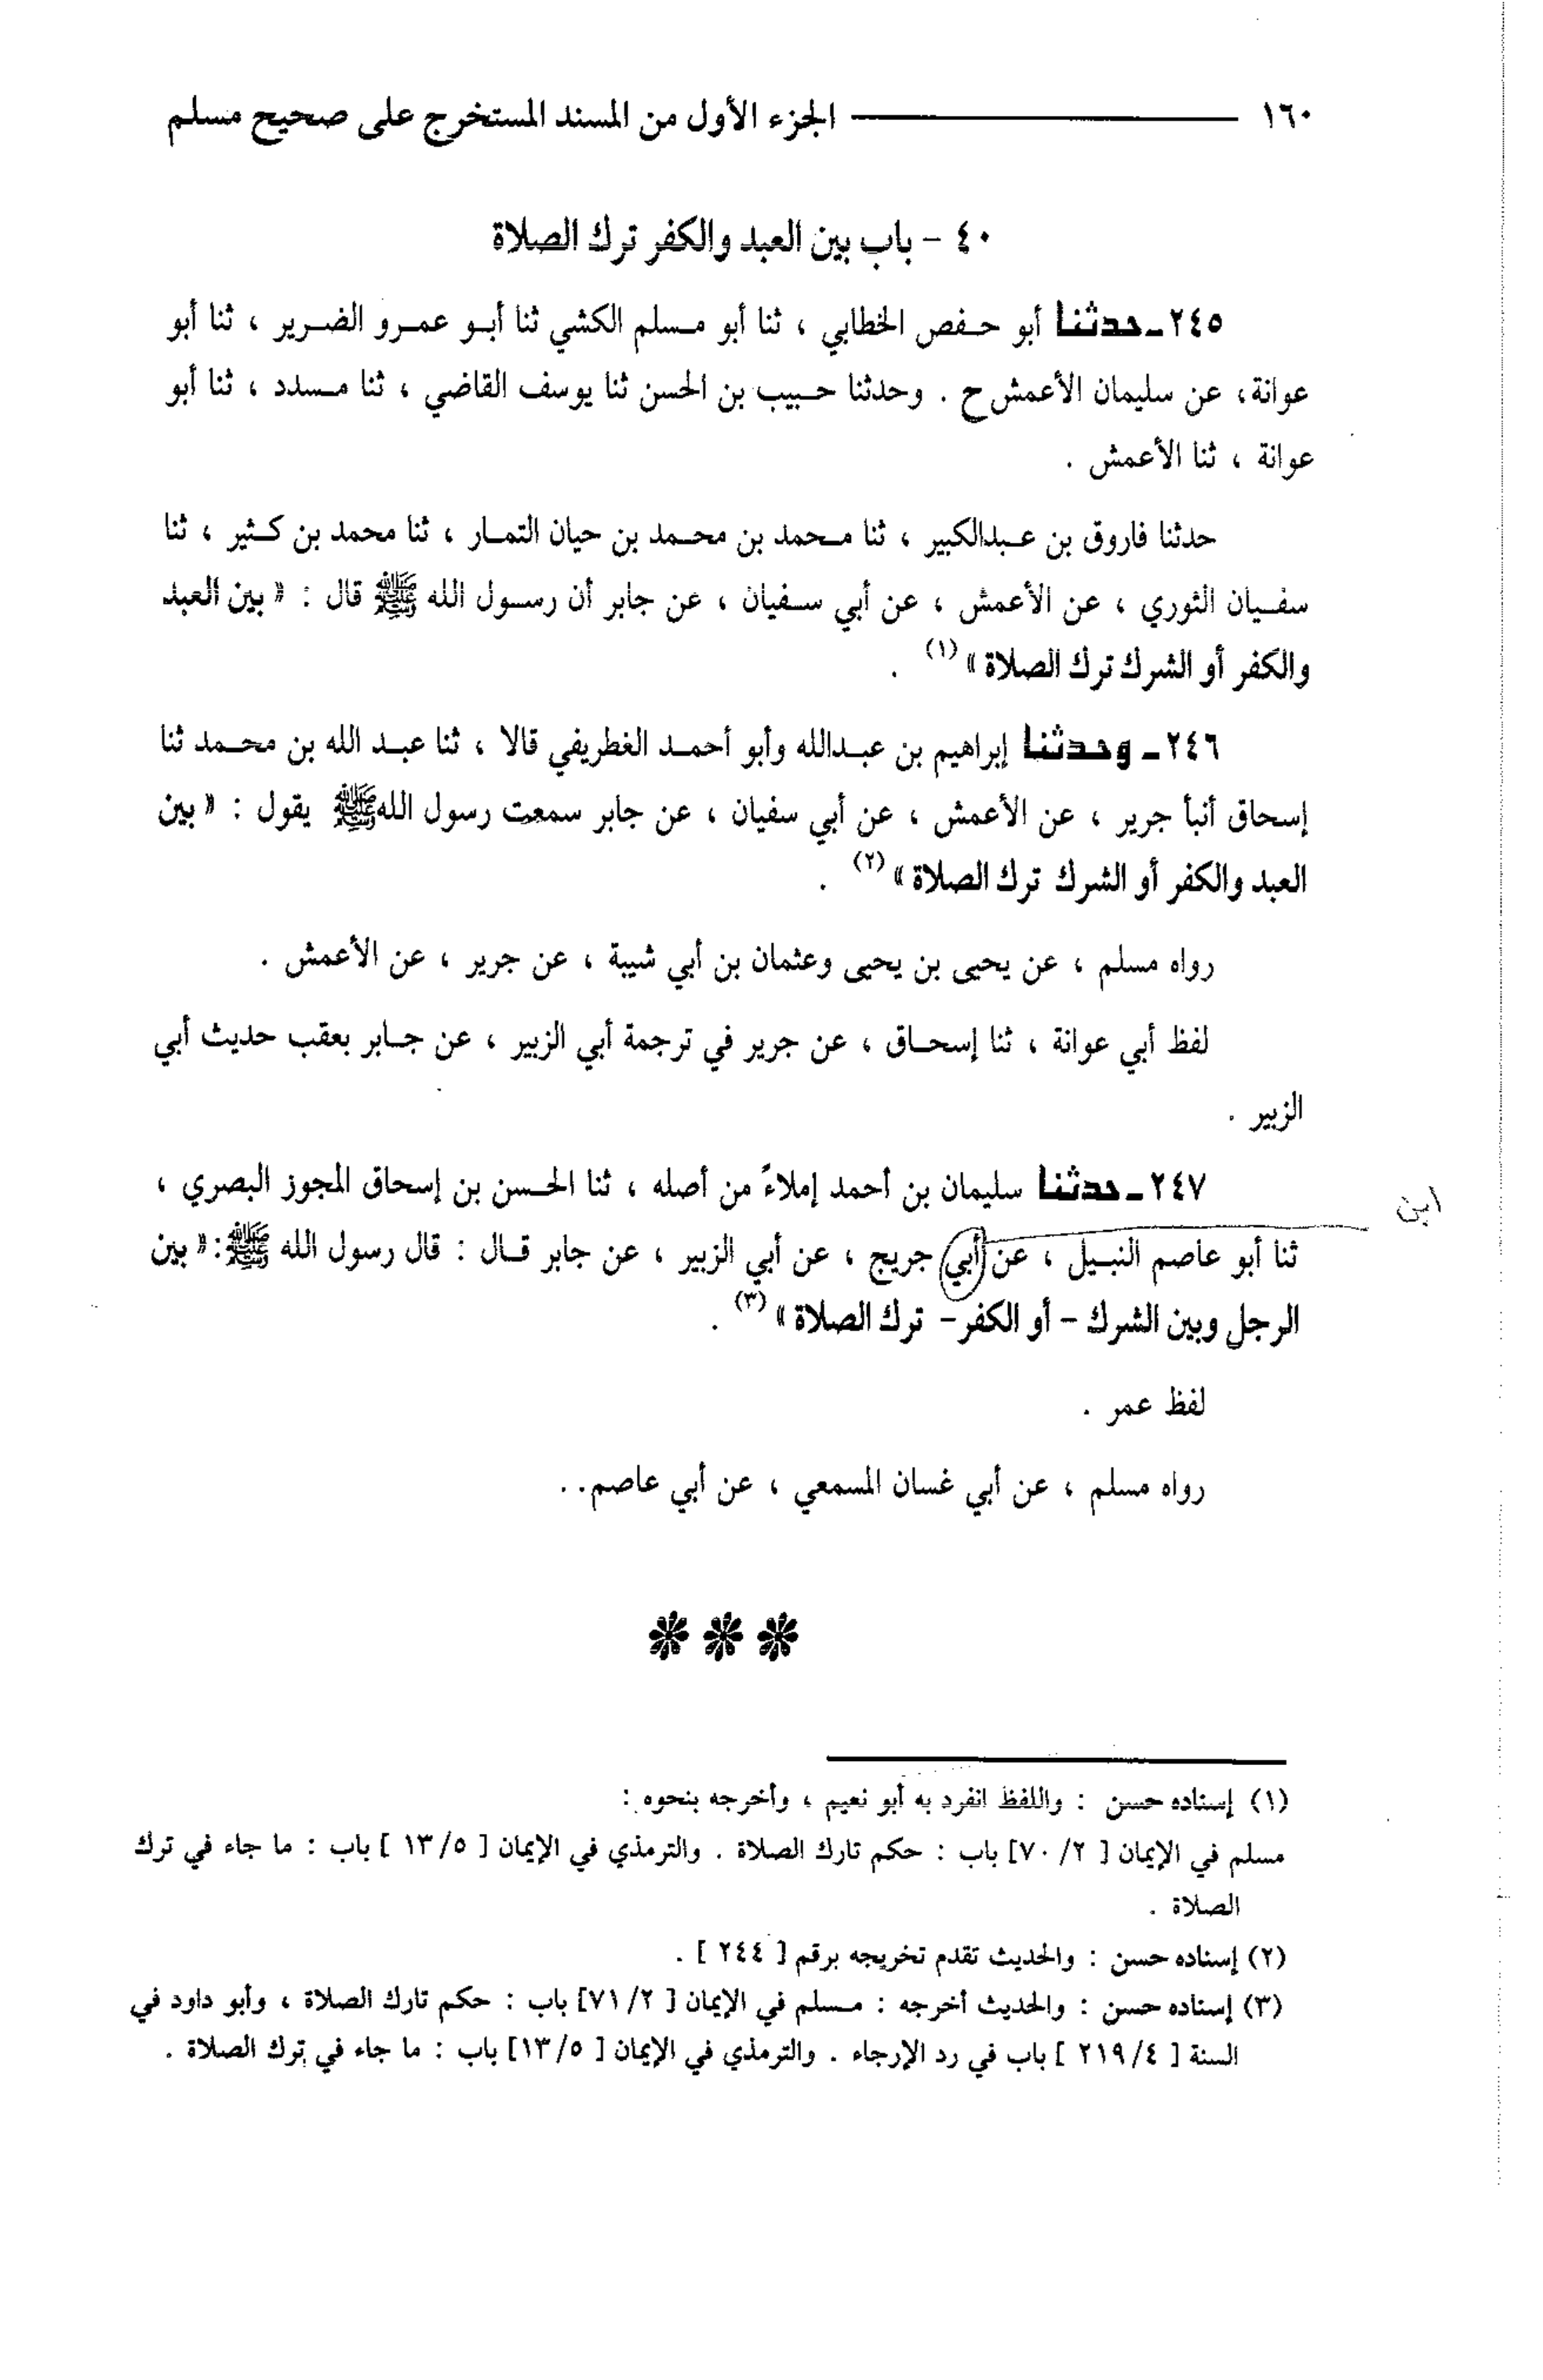 ١٦٠ الجزء الأول من المسند المستخرج على صحيح مسلم
٤٠ - باب بين العبد والكفر ترك الصلاة
٢٤٥ـ حدثنا أبو حفص الخطابي ، ثنا أبو مسلم الكشي ثنا أبو عمرو الضرير ، ثنا أبو
عوانة، عن سليمان الأعمش ح . وحدثنا حبيب بن الحسن ثنا يوسف القاضي ، ثنا مسدد ، ثنا أبو
عوانة ، ثنا الأعمش .
حدثنا فاروق بن عبدالكبير ، ثنا محمد بن محمد بن حيان التمار ، ثنا محمد بن كثير ، ثنا
سفيان الثوري ، عن الأعمش ، عن أبي سفيان ، عن جابر أن رسول الله ﷺ قال : « بين العبد
والكفر أو الشرك ترك الصلاة » (١) .
٢٤٦ـ وحدثنا إبراهيم بن عبدالله وأبو أحمد الغطريفي قالا ، ثنا عبد الله بن محمد ثنا
إسحاق أنبأ جرير ، عن الأعمش ، عن أبي سفيان ، عن جابر سمعت رسول الله ﷺ يقول : « بين
العبد والكفر أو الشرك ترك الصلاة » (٢) .
رواه مسلم ، عن يحيى بن يحيى وعثمان بن أبي شيبة ، عن جرير ، عن الأعمش .
لفظ أبي عوانة ، ثنا إسحاق ، عن جرير في ترجمة أبي الزبير ، عن جابر بعقب حديث أبي
الزبير .
٢٤٧ـ حدثنا سليمان بن أحمد إملاءً من أصله ، ثنا الحسن بن إسحاق المجوز البصري ،
ابن
ثنا أبو عاصم النبيل ، عن أبي جريج ، عن أبي الزبير ، عن جابر قال : قال رسول الله ﷺ: « بين
الرجل وبين الشرك - أو الكفر- ترك الصلاة » (٣) .
لفظ عمر .
رواه مسلم ، عن أبي غسان المسمعي ، عن أبي عاصم..
(١) إسناده حسن : واللفظ انفرد به أبو نعيم ، وأخرجه بنحوه :
مسلم في الإيمان [ ٢/ ٧٠] باب : حكم تارك الصلاة . والترمذي في الإيمان [ ٥/ ١٣ ] باب : ما جاء في ترك
الصلاة .
(٢) إسناده حسن : والحديث تقدم تخريجه برقم [ ٢٤٤ ] .
(٣) إسناده حسن : والحديث أخرجه : مسلم في الإيمان [ ٢/ ٧١] باب : حكم تارك الصلاة ، وأبو داود في
السنة [ ٤/ ٢١٩ ] باب في رد الإرجاء . والترمذي في الإيمان [ ٥/ ١٣] باب : ما جاء في ترك الصلاة .